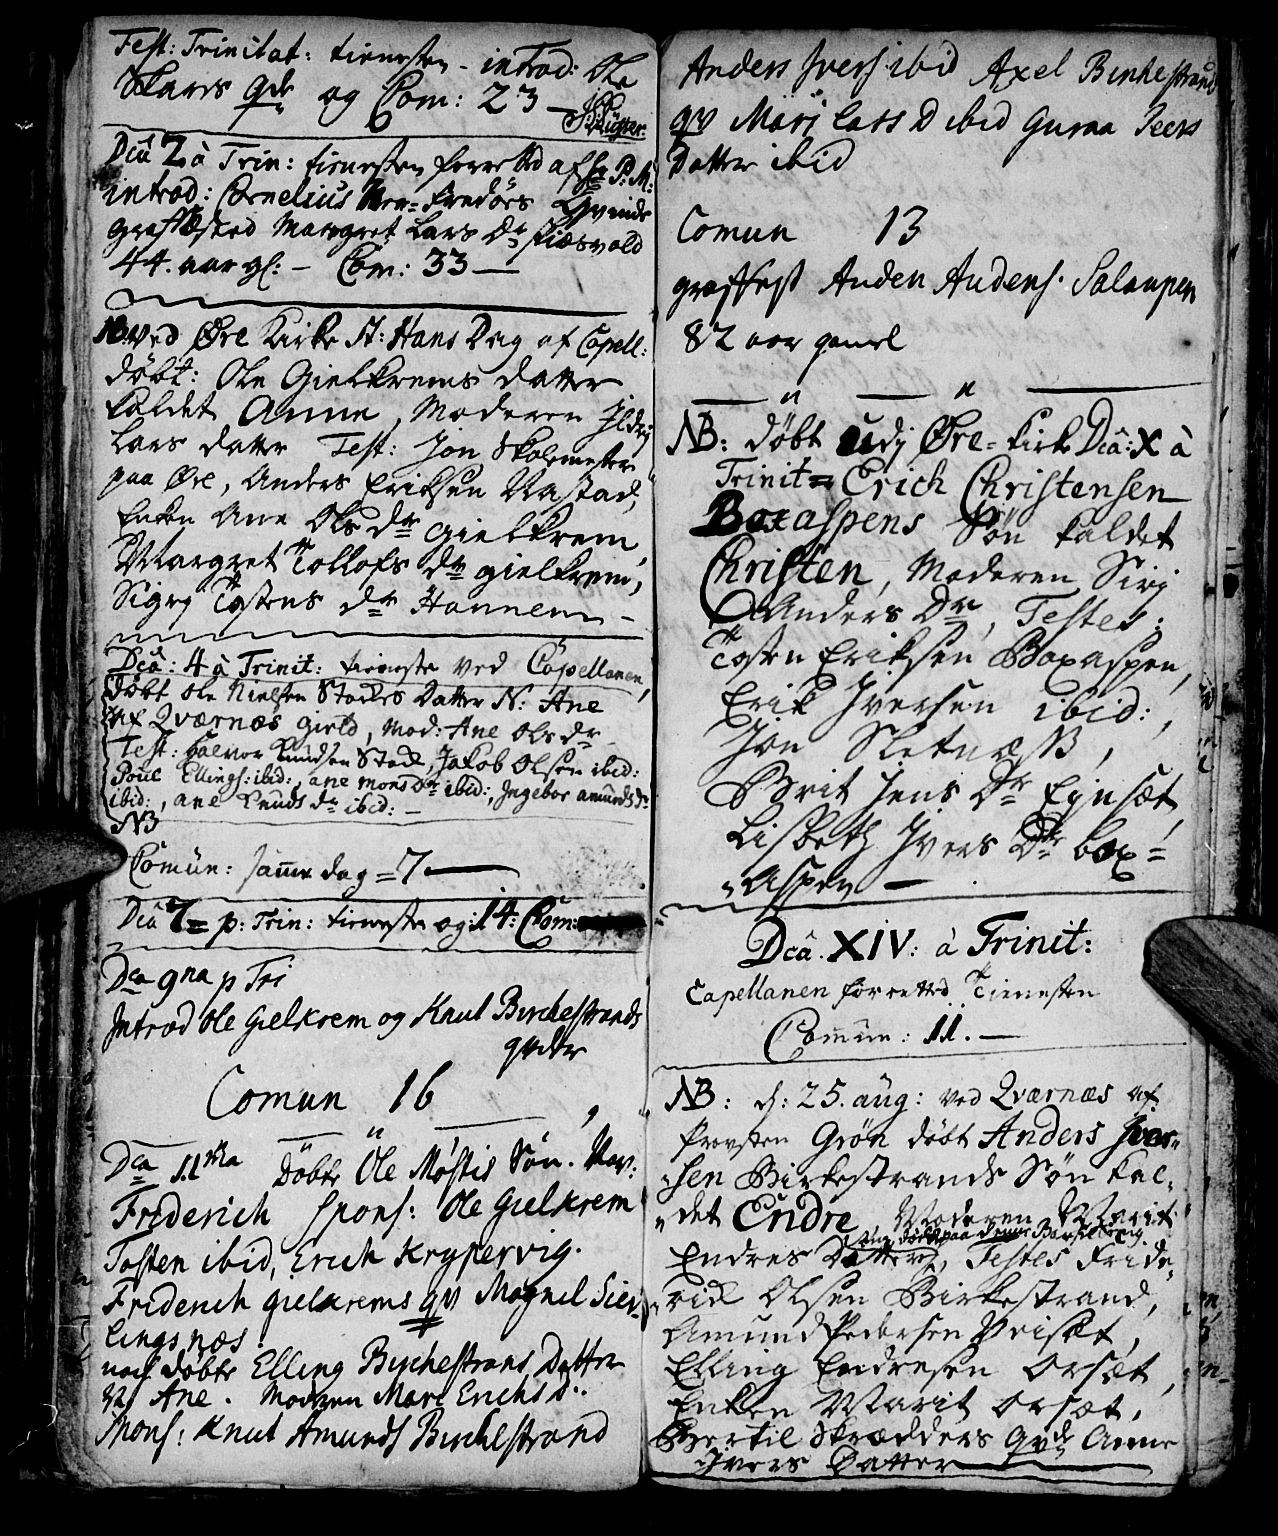 Fest: Trinitat: tienesten - introd: Ole
Skars qde og Com: 23 —
Dca 2 à Trin: tienesten forretted af hr P: M:
introd: Cornelius Qvinde
graffæsted Margret Lars Dr
44. aar gl: - Com: 33 —
NB ved Øre Kirke St: Hans Dag af Capell:
döbt: Ole Gielkrems datter
kaldet Anne, Moderen Ildrij
Lars datter Test: Jon Skolemester
paa Øre, Anders Eriksen Nastad,
Enken Ane Ols dr Gielkrem,
Margret Tollofs dr gielkrem,
Sigrj Tostens dr Hannem -
Dca: 4 à Trinit: tieneste ved Capellanen,
döbt Ole Nielsen Stockes Datter N: Ane
af Qværnæs gield, Mod: Ane Ols dr
Test: Halvor Knudsen Stock, Jakob Olsen ibid:
Poul Ellings: ibid:, ane Mons Dr ibid:, Ingebor amunds dr
ibid:, ane Knuds dr ibid: -
NB
Comun: samme dag = 7 —
Dca 7 = p: Trin: tieneste og: 14: Com:
Dca 9na p Tri
Introd Ole Gielkrem og Knut Birchestrands
qvder
Comun 16
Dca 11tha Döbte Ole Möstis Sön. Nav:
Friderich Spons: Ole Gielkrem
Tosten ibid, Erich Krypervig.
Friderich gielkrems qv Magnil Siev
lingsnæs
noch döbte Elling Birchestrans Datter
N Ane. Modren Mari Erichs D:
Spons: Knut Amunds Birchestrand
Anders Ivers: ibid Axel Birchestrand
qv Mari Lars D ibid Guraa Peers
Datter ibid
Comun 13
graffest Auden Audens. Salaupen
82 aar gamel
NB: döbt udj Øre = kirke Dca: X à
Trinit = Erich Christensen
Boxaspens Sön kaldet
Christen, Moderen Sirj
Anders Dr, Testes:
Tosten Eriksen Boxaspen,
Erik Iversen ibid:,
Jon Sletnæss,
Brit Jens Dr Eijnsæt,
Lisbeth Ivers Dr box=
aspen —
Dca. XIV: à Trinit:
Capellanen forretted Tienesten
Comun: 11. —
NB: d: 25. aug: ved Qværnæs af
Provsten Grön döbt Anders Iver-
sen Birkestrands Sön kal-
det Endre, Moderen Marit
Endres Datter, Testes Fride-
rick Olsen Birkestrand,
Amund Pedersen Priset,
Elling Endresen Orset,
Enken Marit Orset,
Bertil Skrædders qvde Anne
Ivers Datter